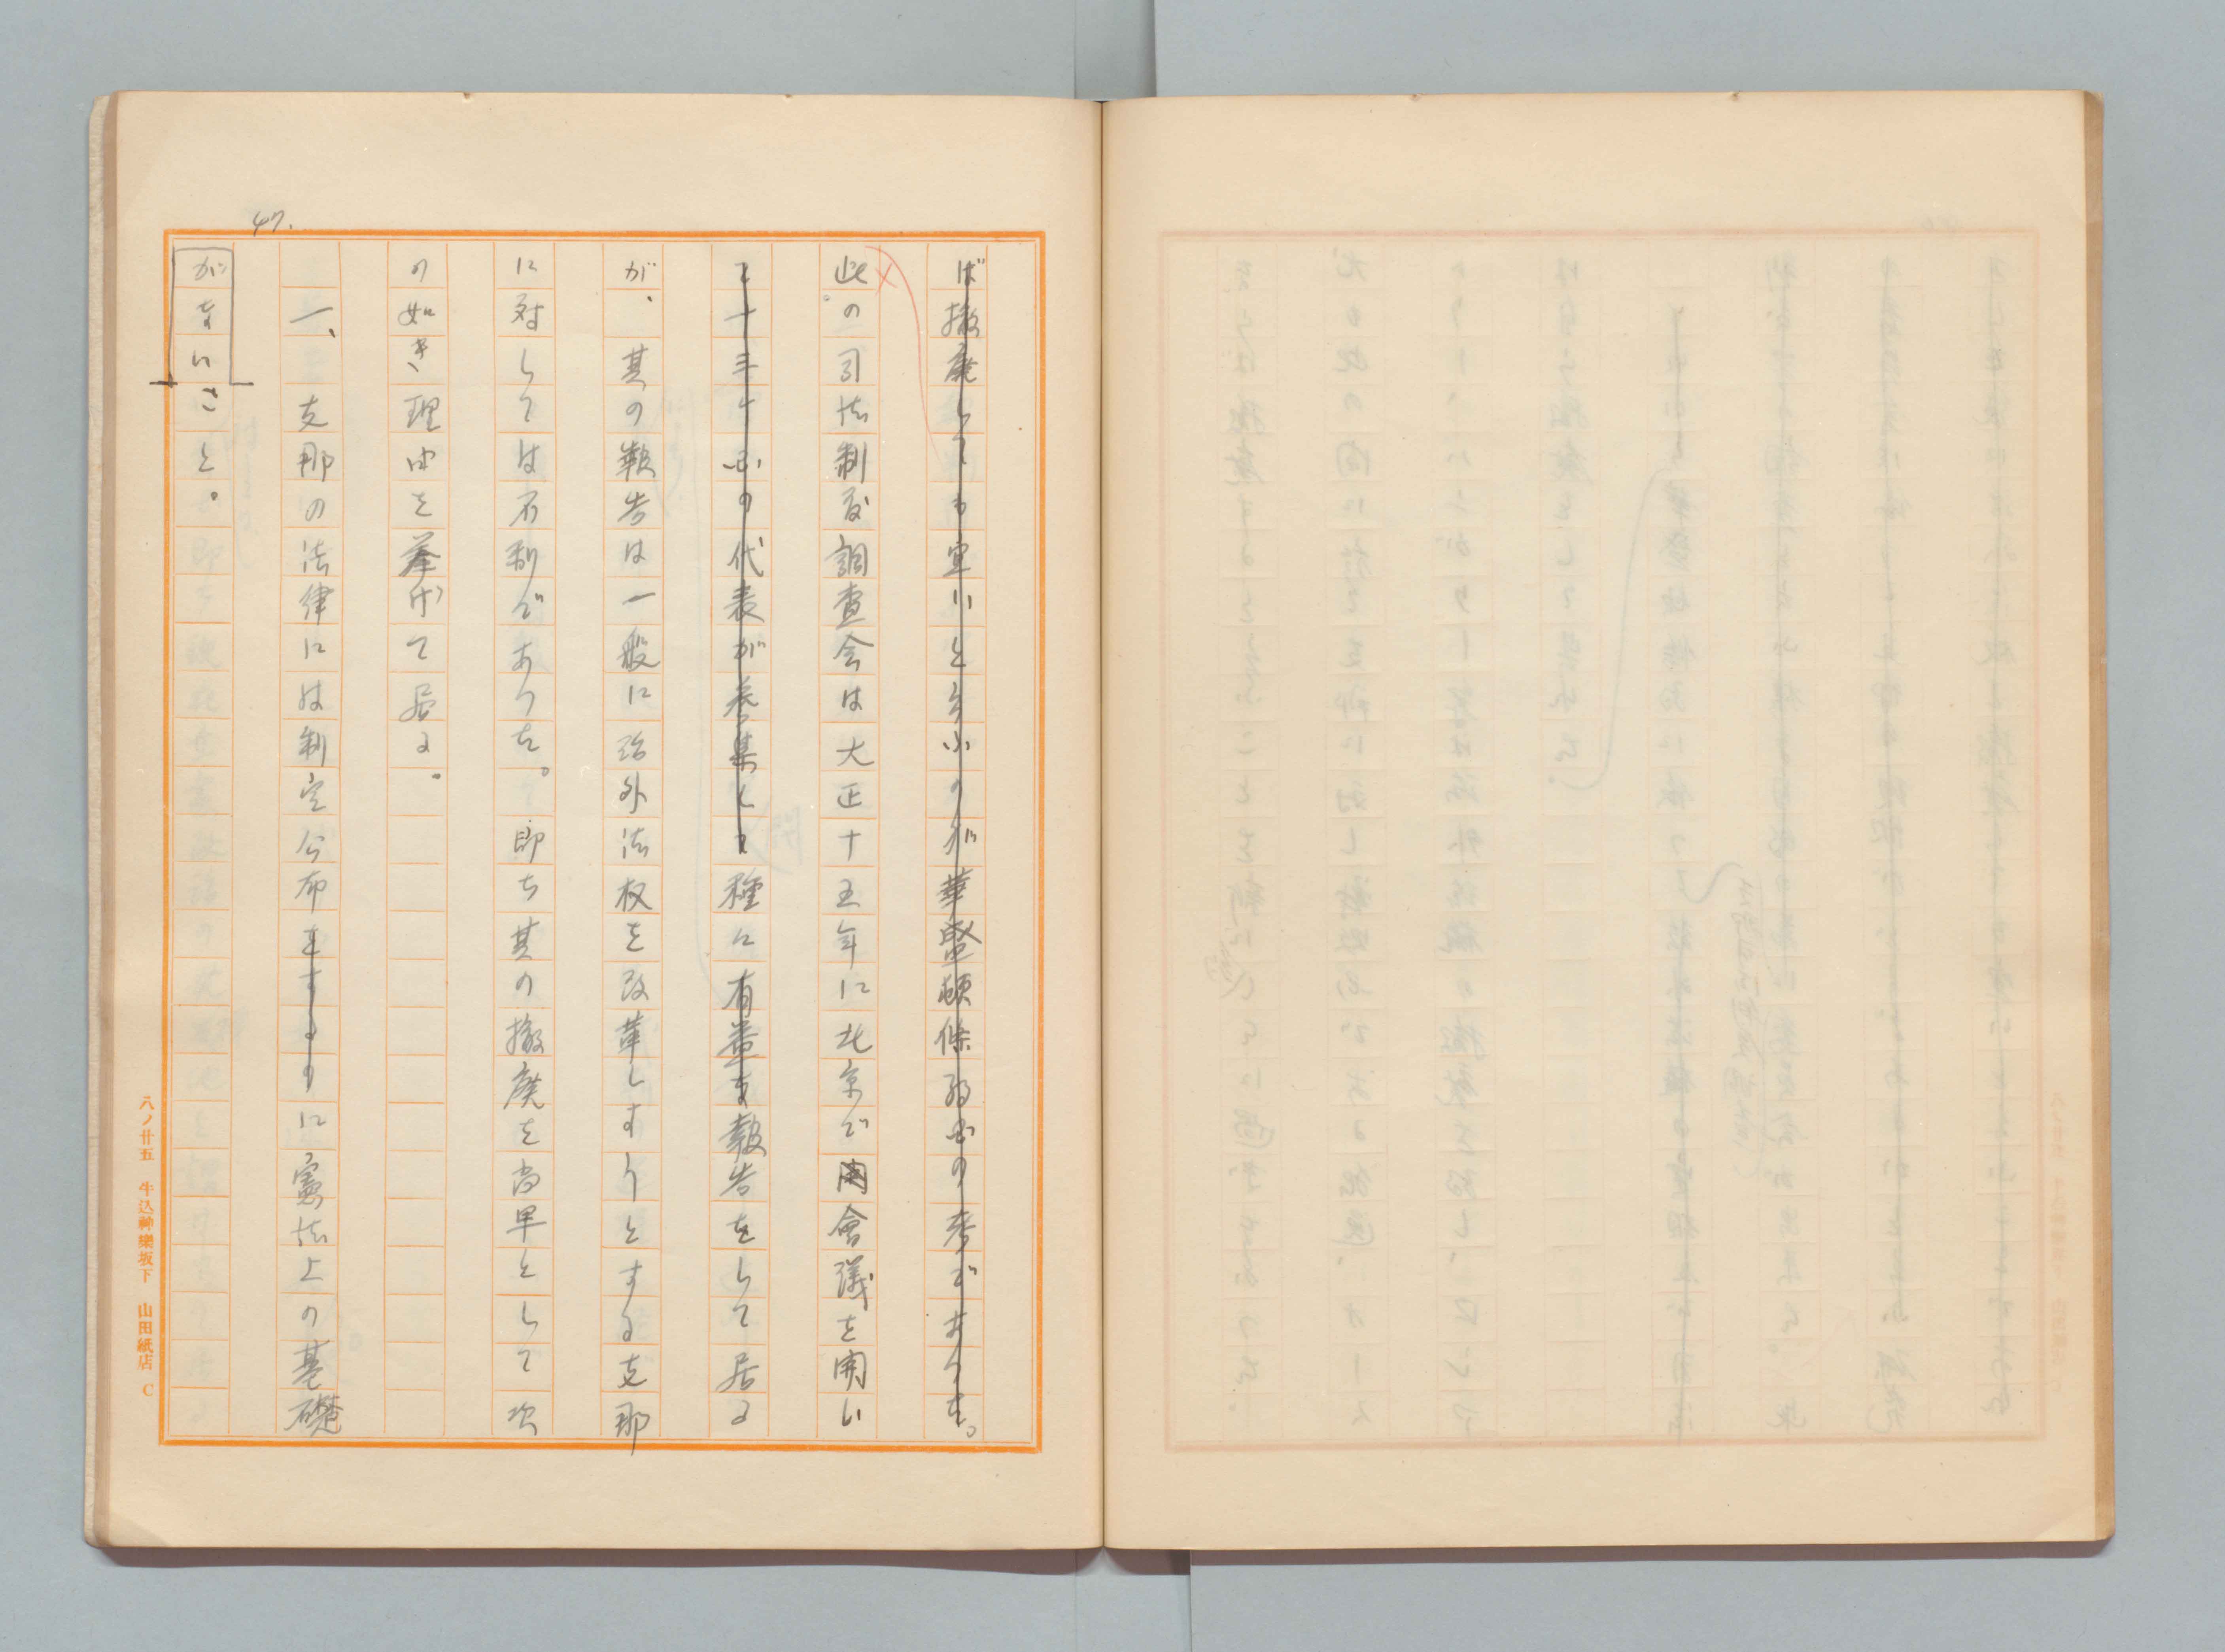 47.
ば撤廃しても宜いと云ふのが華盛頓條約の考であつた。
此の司法制度調査会は大正十五年に北京で會議を開い
て十三ヶ國の代表が参集して種に有益な報告をして居る
が、其の報告は一般に治外法权を改革しすりとする支那
に対しては不利であつた。即ち其の撤廃を尚早として次
の如き理由を挙げて居る。
一、支那の法律には制定公布をするのに憲法上の基礎
がないこと。
八ノ廿五 牛込神樂坂下 山田紙店 C